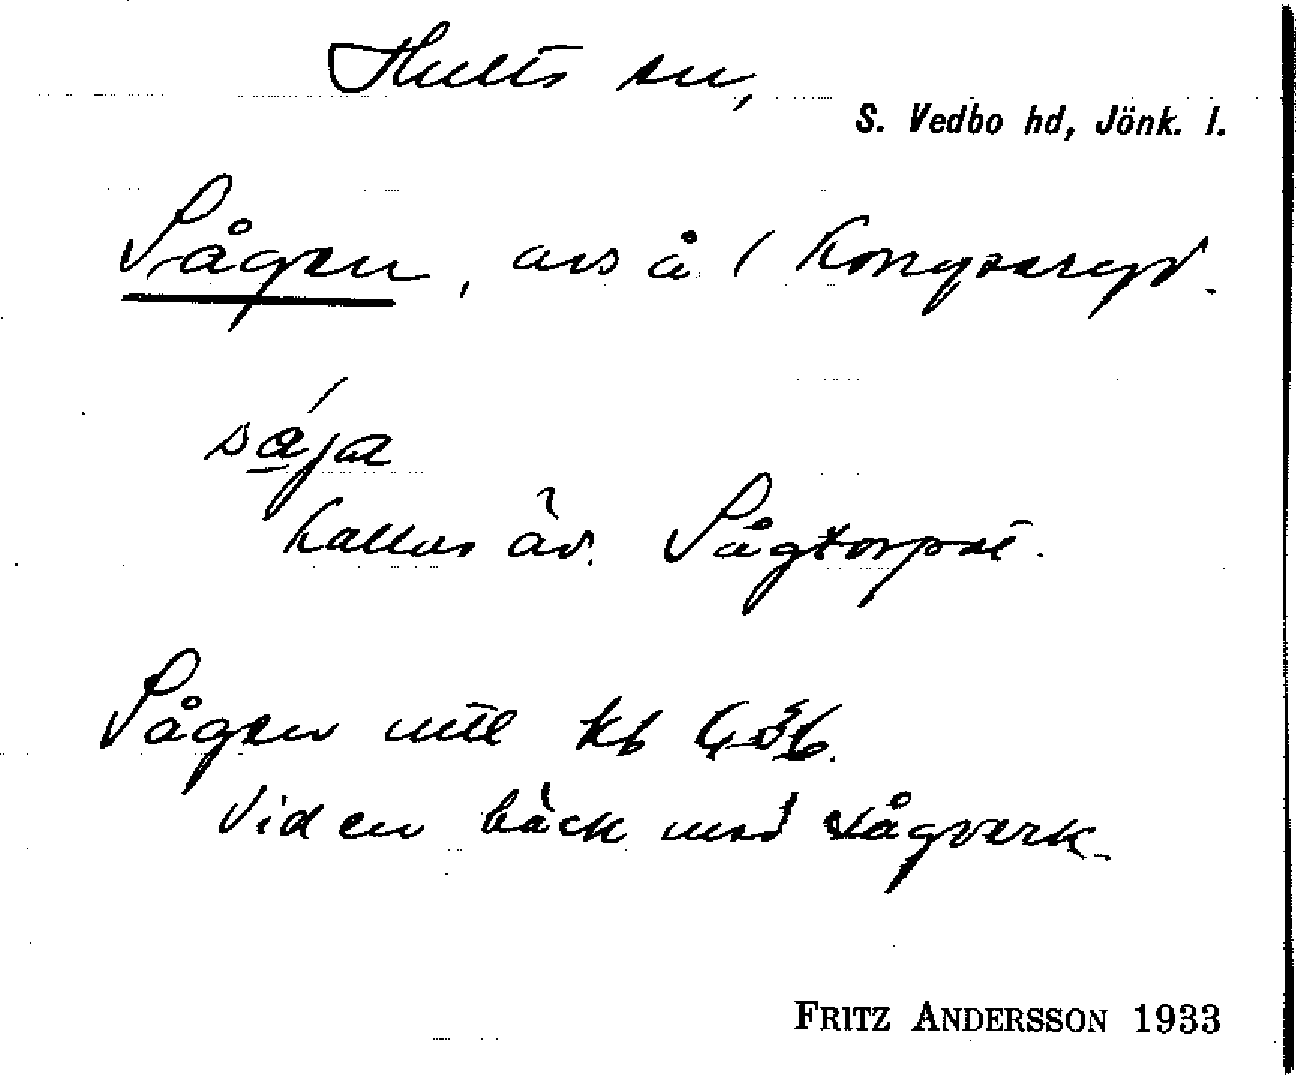 Hults sn,
S. Vedbo hd, Jönk. l.
Sågen, avs å 1 Kongseryd.
såja
kallas äv. Sågtorpet.
Sågen uttl kb
Vid en bäck med sågverk.
FRITZ ANDERSSON 1933